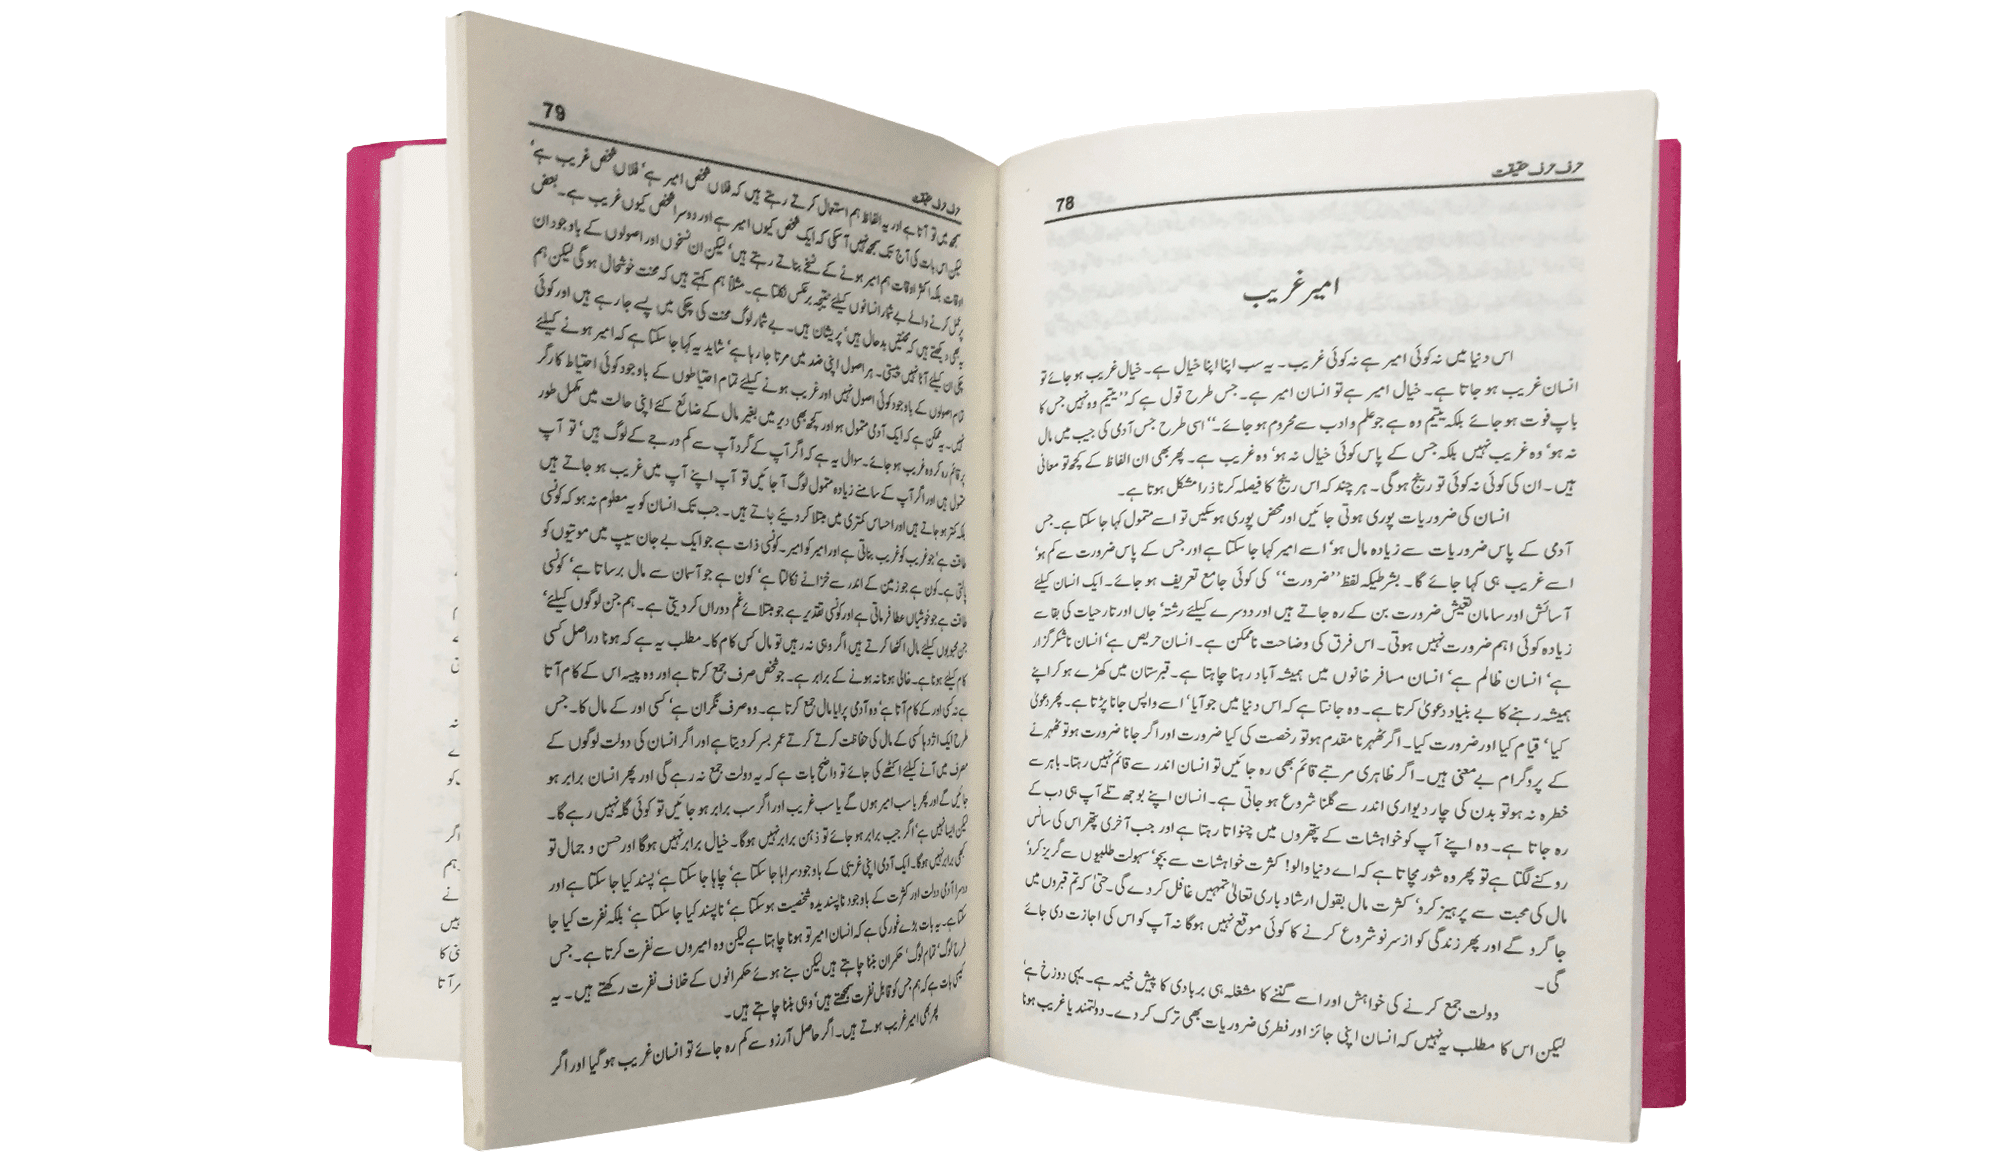 حرف حرف حقیقت
78
امیر غریب
اس دنیا میں نہ کوئی امیر ہے نہ کوئی غریب۔ یہ سب اپنا اپنا خیال ہے۔ خیال غریب ہو جائے تو
انسان غریب ہو جاتا ہے۔ خیال امیر ہے تو انسان امیر ہے۔ جس طرح قول ہے کہ ’’یتیم وہ نہیں جس کا
باپ فوت ہو جائے بلکہ یتیم وہ ہے جو علم و ادب سے محروم ہو جائے۔‘‘ اسی طرح جس آدمی کی جیب میں مال
نہ ہو‘ وہ غریب نہیں بلکہ جس کے پاس کوئی خیال نہ ہو‘ وہ غریب ہے۔ پھر بھی ان الفاظ کے کچھ تو معانی
ہیں۔ ان کی کوئی نہ کوئی تو رینج ہوگی۔ ہر چند کہ اس رینج کا فیصلہ کرنا ذرا مشکل ہوتا ہے۔
انسان کی ضروریات پوری ہوتی جائیں اور محض پوری ہو سکیں تو اسے متمول کہا جا سکتا ہے۔ جس
آدمی کے پاس ضروریات سے زیادہ مال ہو‘ اسے امیر کہا جا سکتا ہے اور جس کے پاس ضرورت سے کم ہو‘
اسے غریب ہی کہا جائے گا۔ بشرطیکہ لفظ ’’ضرورت‘‘ کی کوئی جامع تعریف ہو جائے۔ ایک انسان کیلئے
آسائش اور سامان تعیش ضرورت بن کے رہ جاتے ہیں اور دوسرے کیلئے رشتہ‘ جاں اور تار حیات کی بقا سے
زیادہ کوئی اہم ضرورت نہیں ہوتی۔ اس فرق کی وضاحت ناممکن ہے۔ انسان حریص ہے‘ انسان ناشکر گزار
ہے‘ انسان ظالم ہے‘ انسان مسافر خانوں میں ہمیشہ آباد رہنا چاہتا ہے۔ قبرستان میں کھڑے ہو کر اپنے
ہمیشہ رہنے کا بے بنیاد دعویٰ کرتا ہے۔ وہ جانتا ہے کہ اس دنیا میں جو آیا‘ اسے واپس جانا پڑتا ہے۔ پھر دعویٰ
کیا‘ قیام کیا اور ضرورت کیا۔ اگر ٹھہرنا مقدم ہو تو رخصت کی کیا ضرورت اور اگر جانا ضرورت ہو تو ٹھہرنے
کے پروگرام بے معنی ہیں۔ اگر ظاہری مرتبے قائم بھی رہ جائیں تو انسان اندر سے قائم نہیں رہتا۔ باہر سے
خطرہ نہ ہو تو بدن کی چار دیواری اندر سے گلنا شروع ہو جاتی ہے۔ انسان اپنے بوجھ تلے آپ ہی دب کے
رہ جاتا ہے۔ وہ اپنے آپ کو خواہشات کے پتھروں میں چنواتا رہتا ہے اور جب آخری پتھر اس کی سانس
روکنے لگتا ہے تو پھر وہ شور مچاتا ہے کہ اے دنیا والو! کثرت خواہشات سے بچو‘ سہولت طلبیوں سے گریز کرو‘
مال کی محبت سے پرہیز کرو‘ کثرت مال بقول ارشاد باری تعالیٰ تمہیں غافل کر دے گی۔ حتیٰ کہ تم قبروں میں
جا گرو گے اور پھر زندگی کو از سر نو شروع کرنے کا کوئی موقع نہیں ہوگا نہ آپ کو اس کی اجازت دی جائے
گی۔
دولت جمع کرنے کی خواہش اور اسے گننے کا مشغلہ ہی بربادی کا پیش خیمہ ہے۔ یہی دوزخ ہے‘
لیکن اس کا مطلب یہ نہیں کہ انسان اپنی جائز اور فطری ضروریات بھی ترک کر دے۔ دولتمند یا غریب ہونا
حرف حرف حقیقت
79
سمجھ میں تو آتا ہے اور یہ الفاظ ہم استعمال کرتے رہتے ہیں کہ فلاں شخص امیر ہے‘ فلاں شخص غریب ہے‘
لیکن اس بات کی آج تک سمجھ نہیں آ سکی کہ ایک شخص کیوں امیر ہے اور دوسرا شخص کیوں غریب ہے۔ بعض
اوقات بلکہ اکثر اوقات ہم امیر ہونے کے نسخے بناتے رہتے ہیں‘ لیکن ان نسخوں اور اصولوں کے باوجود ان
پر عمل کرنے والے بے شمار انسانوں کیلئے نتیجہ برعکس نکلتا ہے۔ مثلاً ہم کہتے ہیں کہ محنت خوشحال ہوگی لیکن ہم
یہ بھی دیکھتے ہیں کہ محنتیں بدحال ہیں‘ پریشان ہیں۔ بے شمار لوگ محنت کی چکی میں پسے جا رہے ہیں اور کوئی
چکی ان کیلئے آٹا نہیں پیستی۔ ہر اصول اپنی ضد میں مرتا جا رہا ہے‘ شاید یہ کہا جا سکتا ہے کہ امیر ہونے کیلئے
تمام اصولوں کے باوجود کوئی اصول نہیں اور غریب ہونے کیلئے تمام احتیاطوں کے باوجود کوئی احتیاط کارگر
نہیں۔ یہ ممکن ہے کہ ایک آدمی متمول ہو اور کچھ بھی دیر میں بغیر مال کے ضائع کئے اپنی حالت میں مکمل طور
پر قائم رہ کر وہ غریب ہو جائے۔ سوال یہ ہے کہ اگر آپ کے گرد آپ سے کم درجے کے لوگ ہیں‘ تو آپ
متمول ہیں اور اگر آپ کے سامنے زیادہ متمول لوگ آ جائیں تو آپ اپنے آپ میں غریب ہو جاتے ہیں
بلکہ کمتر ہو جاتے ہیں اور احساس کمتری میں مبتلا کر دیئے جاتے ہیں۔ جب تک انسان کو یہ معلوم نہ ہو کہ کونسی
طاقت ہے‘ جو غریب کو غریب بناتی ہے اور امیر کو امیر۔ کونسی ذات ہے جو ایک بے جان سیپ میں موتیوں کو
پالتی ہے۔ کون ہے جو زمین کے اندر سے خزانے نکالتا ہے‘ کون ہے جو آسمان سے مال برساتا ہے‘ کونسی
طاقت ہے جو خوشیاں عطا فرماتی ہے اور کونسی تقدیر ہے جو مبتلائے غم دوراں کر دیتی ہے۔ ہم جن لوگوں کیلئے‘
جن محبوبوں کیلئے مال اکٹھا کرتے ہیں اگر وہی نہ رہیں تو مال کس کام کا۔ مطلب یہ ہے کہ ہونا دراصل کسی
کام کیلئے ہونا ہے۔ خالی ہونا نہ ہونے کے برابر ہے۔ جو شخص صرف جمع کرتا ہے اور وہ پیسہ اس کے کام آتا
ہے نہ کسی اور کے کام آتا ہے‘ وہ آدمی پرایا مال جمع کرتا ہے۔ وہ صرف نگران ہے‘ کسی اور کے مال کا۔ جس
طرح ایک اژدہا کسی کے مال کی حفاظت کرتے کرتے عمر بسر کر دیتا ہے اور اگر انسان کی دولت لوگوں کے
مصرف میں آنے کیلئے اکٹھی کی جائے تو واضح بات ہے کہ یہ دولت جمع نہ رہے گی اور پھر انسان برابر ہو
جائیں گے اور پھر یا سب امیر ہوں گے یا سب غریب اور اگر سب برابر ہو جائیں تو کوئی گلہ نہیں رہے گا۔
لیکن ایسا نہیں ہے‘ اگر جیب برابر ہو جائے تو ذہن برابر نہیں ہوگا۔ خیال برابر نہیں ہوگا اور حسن و جمال تو
کبھی برابر نہیں ہوگا۔ ایک آدمی اپنی غریبی کے باوجود سراہا جا سکتا ہے‘ چاہا جا سکتا ہے‘ پسند کیا جا سکتا ہے اور
دوسرا آدمی دولت اور کثرت کے باوجود ناپسندیدہ شخصیت ہو سکتا ہے‘ ناپسند کیا جا سکتا ہے‘ بلکہ نفرت کیا جا
سکتا ہے۔ یہ بات بڑے غور کی ہے کہ انسان امیر تو ہونا چاہتا ہے لیکن وہ امیروں سے نفرت کرتا ہے۔ جس
طرح لوگ‘ تمام لوگ‘ حکمران بننا چاہتے ہیں لیکن بنے ہوئے حکمرانوں کے خلاف نفرت رکھتے ہیں۔ یہ
کیسی بات ہے کہ ہم جس کو قابل نفرت سمجھتے ہیں‘ وہی بننا چاہتے ہیں۔
پھر بھی امیر غریب ہوتے ہیں۔ اگر حاصل آرزو سے کم رہ جائے تو انسان غریب ہو گیا اور اگر